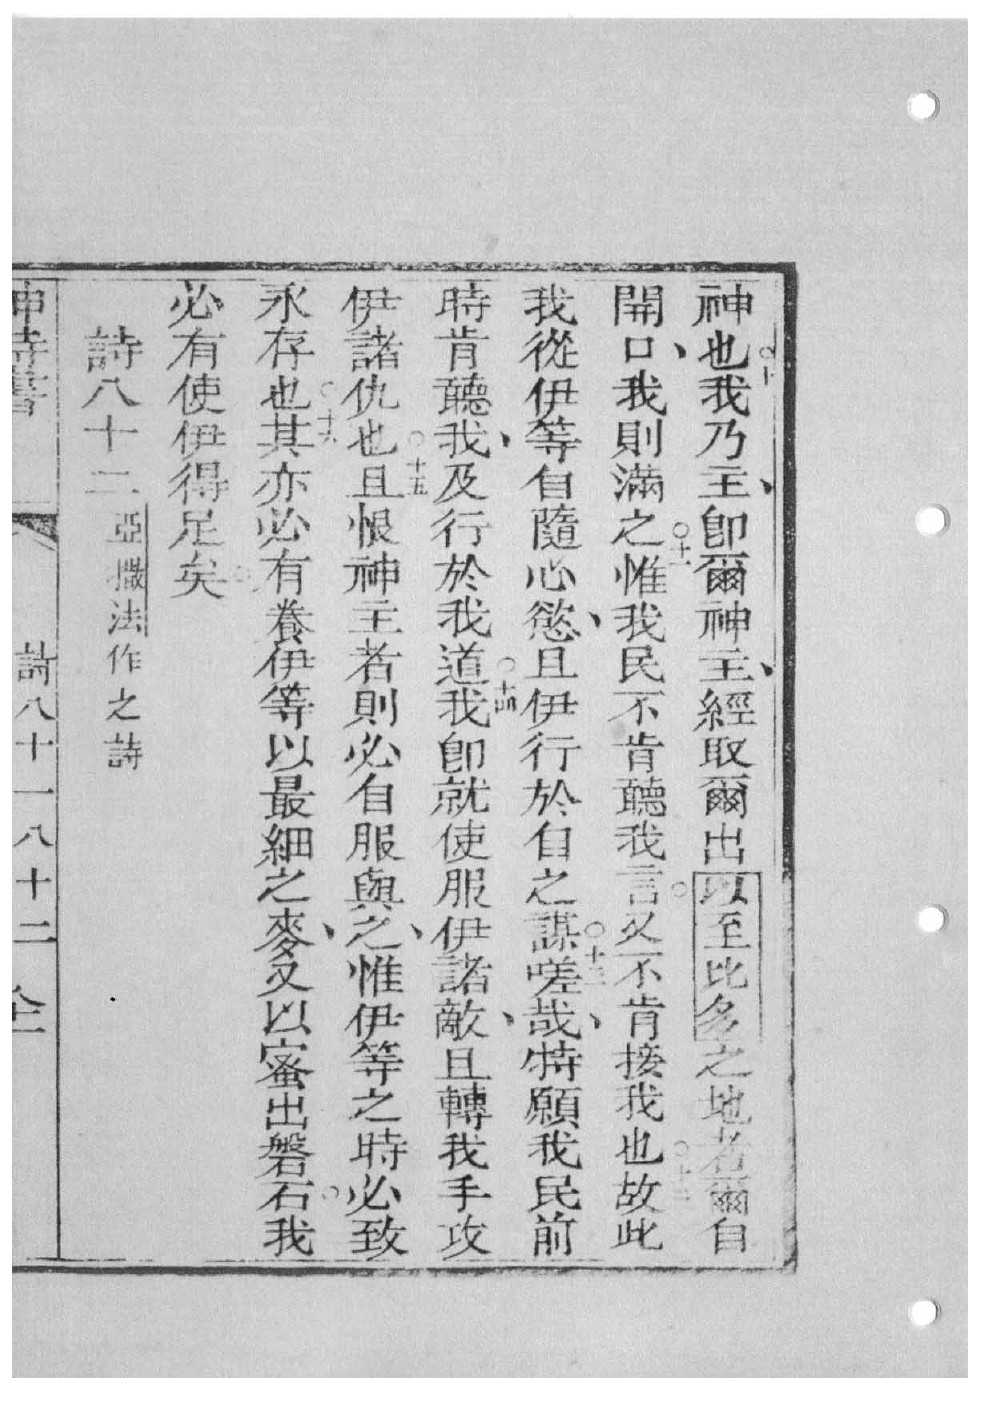 神也○十我乃主、卽爾神主、經取爾出以至比多之地者爾自
開口、我則滿之○十一惟我民不肯聽我言○又不肯接我也○十二故此
我從伊等自隨心慾、且伊行於自之謀○十三嗟哉、特願我民前
時肯聽我、及行於我道○十四我卽就使服伊諸敵、且轉我手攻
伊諸仇也○十五且恨神主者則必自服與之、惟伊等之時必致
永存也○十六其亦必有養伊等以最細之麥、又以蜜出磐石○我
必有使伊得足矣○
詩八十二 亞撒法作之詩
神詩書 詩八十一八十二